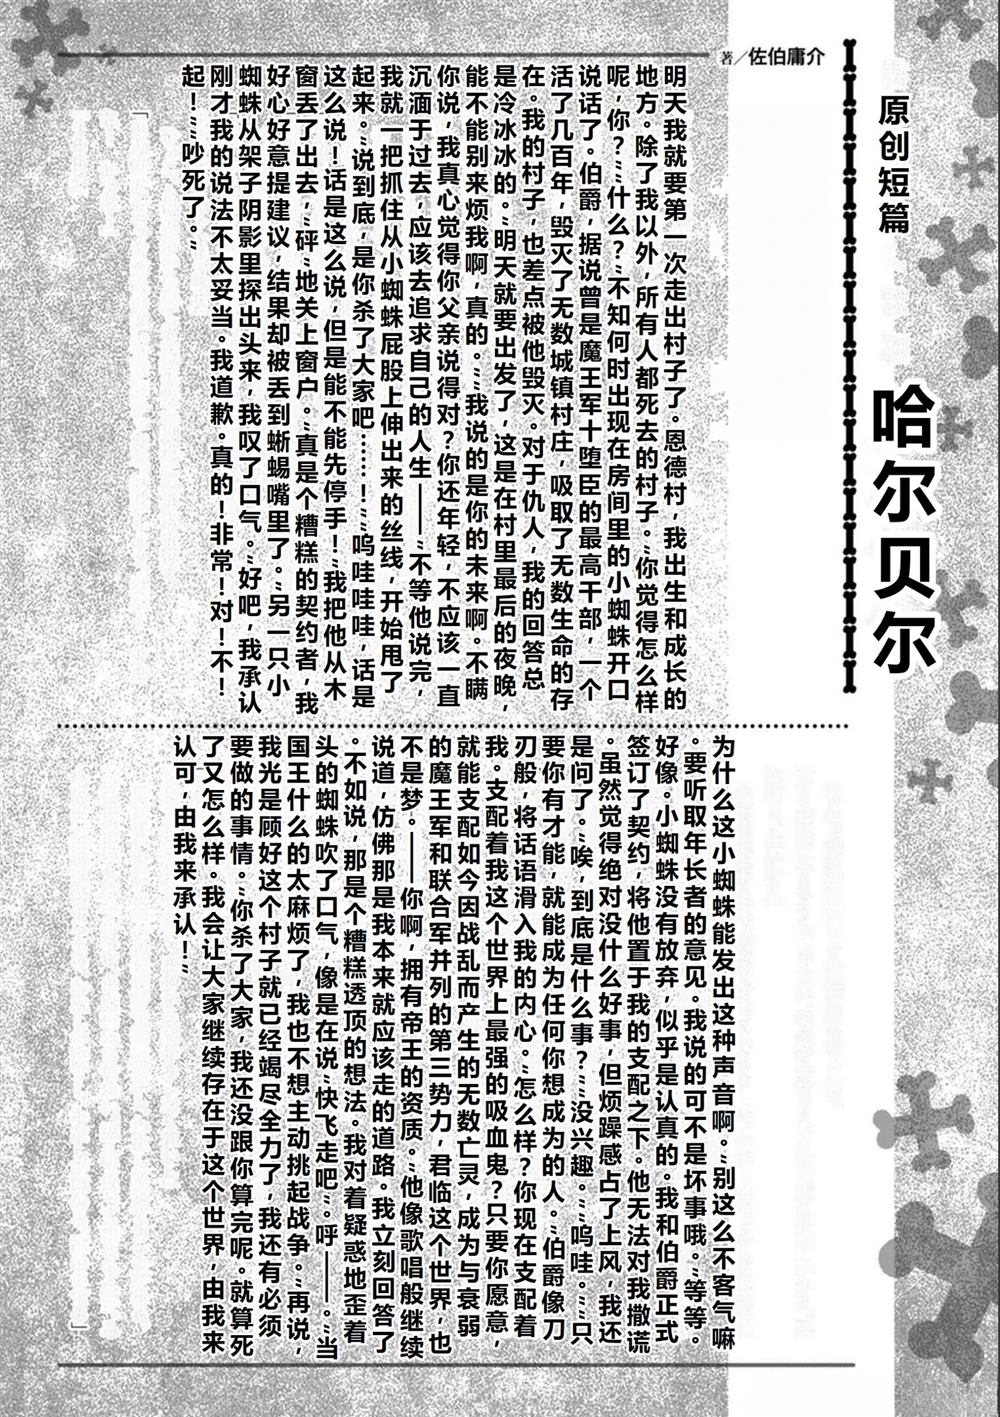 原创短篇
哈尔贝尔
著／佐伯庸介
明天我就要第一次走出村子了。恩德村，我出生和成长的
地方。除了我以外，所有人都死去的村子。“你觉得怎么样
呢，你？”“什么？”不知何时出现在房间里的小蜘蛛开口
说话了。伯爵，据说曾是魔王军十堕臣的最高干部，一个
活了几百年，毁灭了无数城镇村庄，吸取了无数生命的存
在。我的村子，也差点被他毁灭。对于仇人，我的回答总
是冷冰冰的。“明天就要出发了，这是在村里最后的夜晚，
能不能别来烦我啊，真的。”“我说的是你的未来啊。不瞒
你说，我真心觉得你父亲说得对？你还年轻，不应该一直
沉湎于过去，应该去追求自己的人生——”不等他说完，
我就一把抓住从小蜘蛛屁股上伸出来的丝线，开始甩了
起来。“说到底，是你杀了大家吧……！”“呜哇哇哇，话是
这么说！话是这么说，但是能不能先停手！”我把他从木
窗丢了出去，“砰”地关上窗户。“真是个糟糕的契约者，我
好心好意提建议，结果却被丢到蜥蜴嘴里了。”另一只小
蜘蛛从架子阴影里探出头来，我叹了口气。“好吧，我承认
刚才我的说法不太妥当。我道歉。真的！非常！对！不！
起！”“吵死了。”
为什么这小蜘蛛能发出这种声音啊。“别这么不客气嘛
。要听取年长者的意见。我说的可不是坏事哦。”等等。
好像。小蜘蛛没有放弃，似乎是认真的。我和伯爵正式
签订了契约，将他置于我的支配之下。他无法对我撒谎
。虽然觉得绝对没什么好事，但烦躁感占了上风，我还
是问了。“唉，到底是什么事？”“没兴趣。”“呜哇。”“只
要你有才能，就能成为任何你想成为的人。”伯爵像刀
刃般，将话语滑入我的内心。“怎么样？你现在支配着
我。支配着我这个世界上最强的吸血鬼？只要你愿意，
就能支配如今因战乱而产生的无数亡灵，成为与衰弱
的魔王军和联合军并列的第三势力，君临这个世界，也
不是梦。——你啊，拥有帝王的资质。”他像歌唱般继续
说道，仿佛那是我本来就应该走的道路。我立刻回答了
。不如说，那是个糟糕透顶的想法。我对着疑惑地歪着
头的蜘蛛吹了口气，像是在说“快飞走吧”。呼——。“当
国王什么的太麻烦了，我也不想主动挑起战争。”再说，
我光是顾好这个村子就已经竭尽全力了，我还有必须
要做的事情。“你杀了大家，我还没跟你算完呢。就算死
了又怎么样。我会让大家继续存在于这个世界，由我来
认可，由我来承认！”